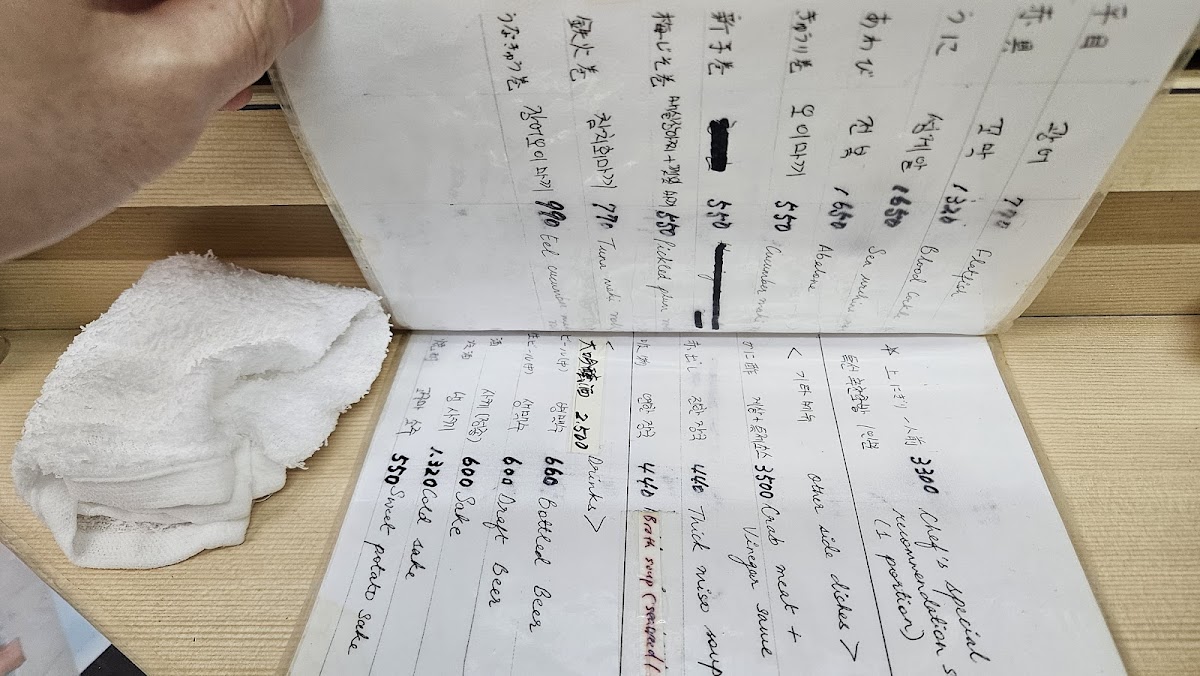 平貝 광어 770 Flatfish
赤貝 꼬막 1320 Blood
うに 성게알 1650 Sea urchin
あわび 전복 1650 Abalone
きゅうり巻 오이마끼 550 Cucumber maki
新手巻 550
梅じそ巻 550 Pickled plum
鉄火巻 참치회마끼 770 Tuna maki roll
うなきゅう巻 장어오이마끼 990 Eel cucumber
* 上にぎり 一人前 3300 Chef's special
recommendation
1인분 (1 portion)
< 기타 메뉴 other side dishes >
かに酢 게살+ 3500 Crab meat +
Vinegar sauce
赤出し 진한 장국 440 Thick miso soup
吸物 연한 장국 440 Broth soup (seaweed)
< Drinks >
大吟醸酒 2.500
ビール(中) 병맥주 660 Bottled Beer
生ビール(中) 생맥주 600 Draft Beer
酒 사케(정종) 600 Sake
冷酒 냉 사케 1.320 Cold sake
焼酎 고구마 소주 550 Sweet potato sake